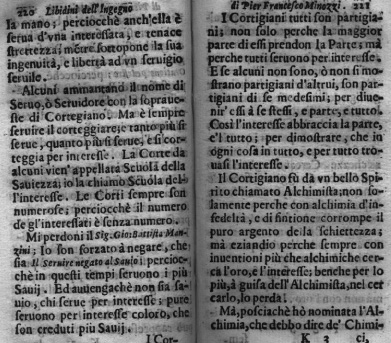 220 Libidini dell'Ingegno
la mano; perciocche anch'ella è
serua d'vna interessata, e tenace
strettezza; mẽtre sottopone la sua
ingenuità, e libertà ad vn seruigio
seruile.
Alcuni ammantano il nome di
Seruo, ò Seruidore con la soprave-
ste di Cortegiano. Ma è sempre
seruire il corteggiare; e tanto più si
serue, quanto più si serue, e si cor-
teggia per interesse. La Corte da
alcuni vien' appellata Scuola della
Sauiezza; io la chiamo Scuola del-
l'interesse. Le Corti sempre son
numerose; perciocchè il numero
de gl'interessati è senza numero.
Mi perdoni il Sig. Gio: Battista Man-
zini; Io son forzato à negare, che
sia Il Seruire negato al Sauio: percioc-
chè in questi tempi seruono i più
Sauij. Ed auuengachè non sia sa-
uio, chi serue per interesse; pure
seruono per interesse coloro, che
son creduti più Sauij.
I Cor-
di Pier Francesco Minozzi. 221
I Cortigiani tutti son partigia-
ni; non solo perche la maggior
parte di essi prendon la Parte; mà
perche tutti seruono per interesse.
E se alcuni non sono, ò non si mo-
strano partigiani d'altrui, son par-
tigiani di se medesimi; per diue-
nir' essi à se stessi, e parte, e tutto.
Così l'interesse abbraccia la parte,
e'l tutto; per dimostrare, che in
ogni cosa in tutto, e per tutto tro-
uasi l'interesse.
Il Cortigiano fù da vn bello Spi-
rito chiamato Alchimista; non so-
lamente perche con alchimia d'in-
fedeltà, e di fintione corrompe il
puro argento de la schiettezza;
mà eziandio perche sempre con
inuentioni più che alchimiche cer-
ca l'oro, e l'interesse; benche per lo
più, à guisa dell'Alchimista, nel cer
carlo, lo perda.
Mà, posciachè hò nominata l'Al-
chimia, che debbo dire de' Chimi-
K 3 ci,